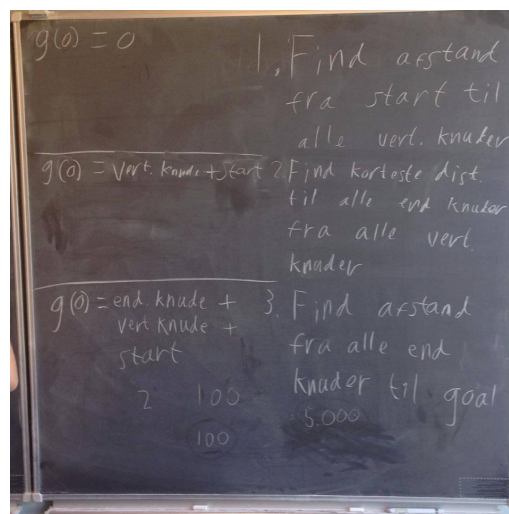 g(0) = 0
1. Find afstand
fra start til
alle vert. knuder
g(0) = vert. knude + start
2. Find korteste dist.
til alle end knuder
fra alle vert.
knuder
g(0) = end. knude +
vert knude +
start
3. Find afstand
fra alle end
knuder til goal
2 100
5.000
100